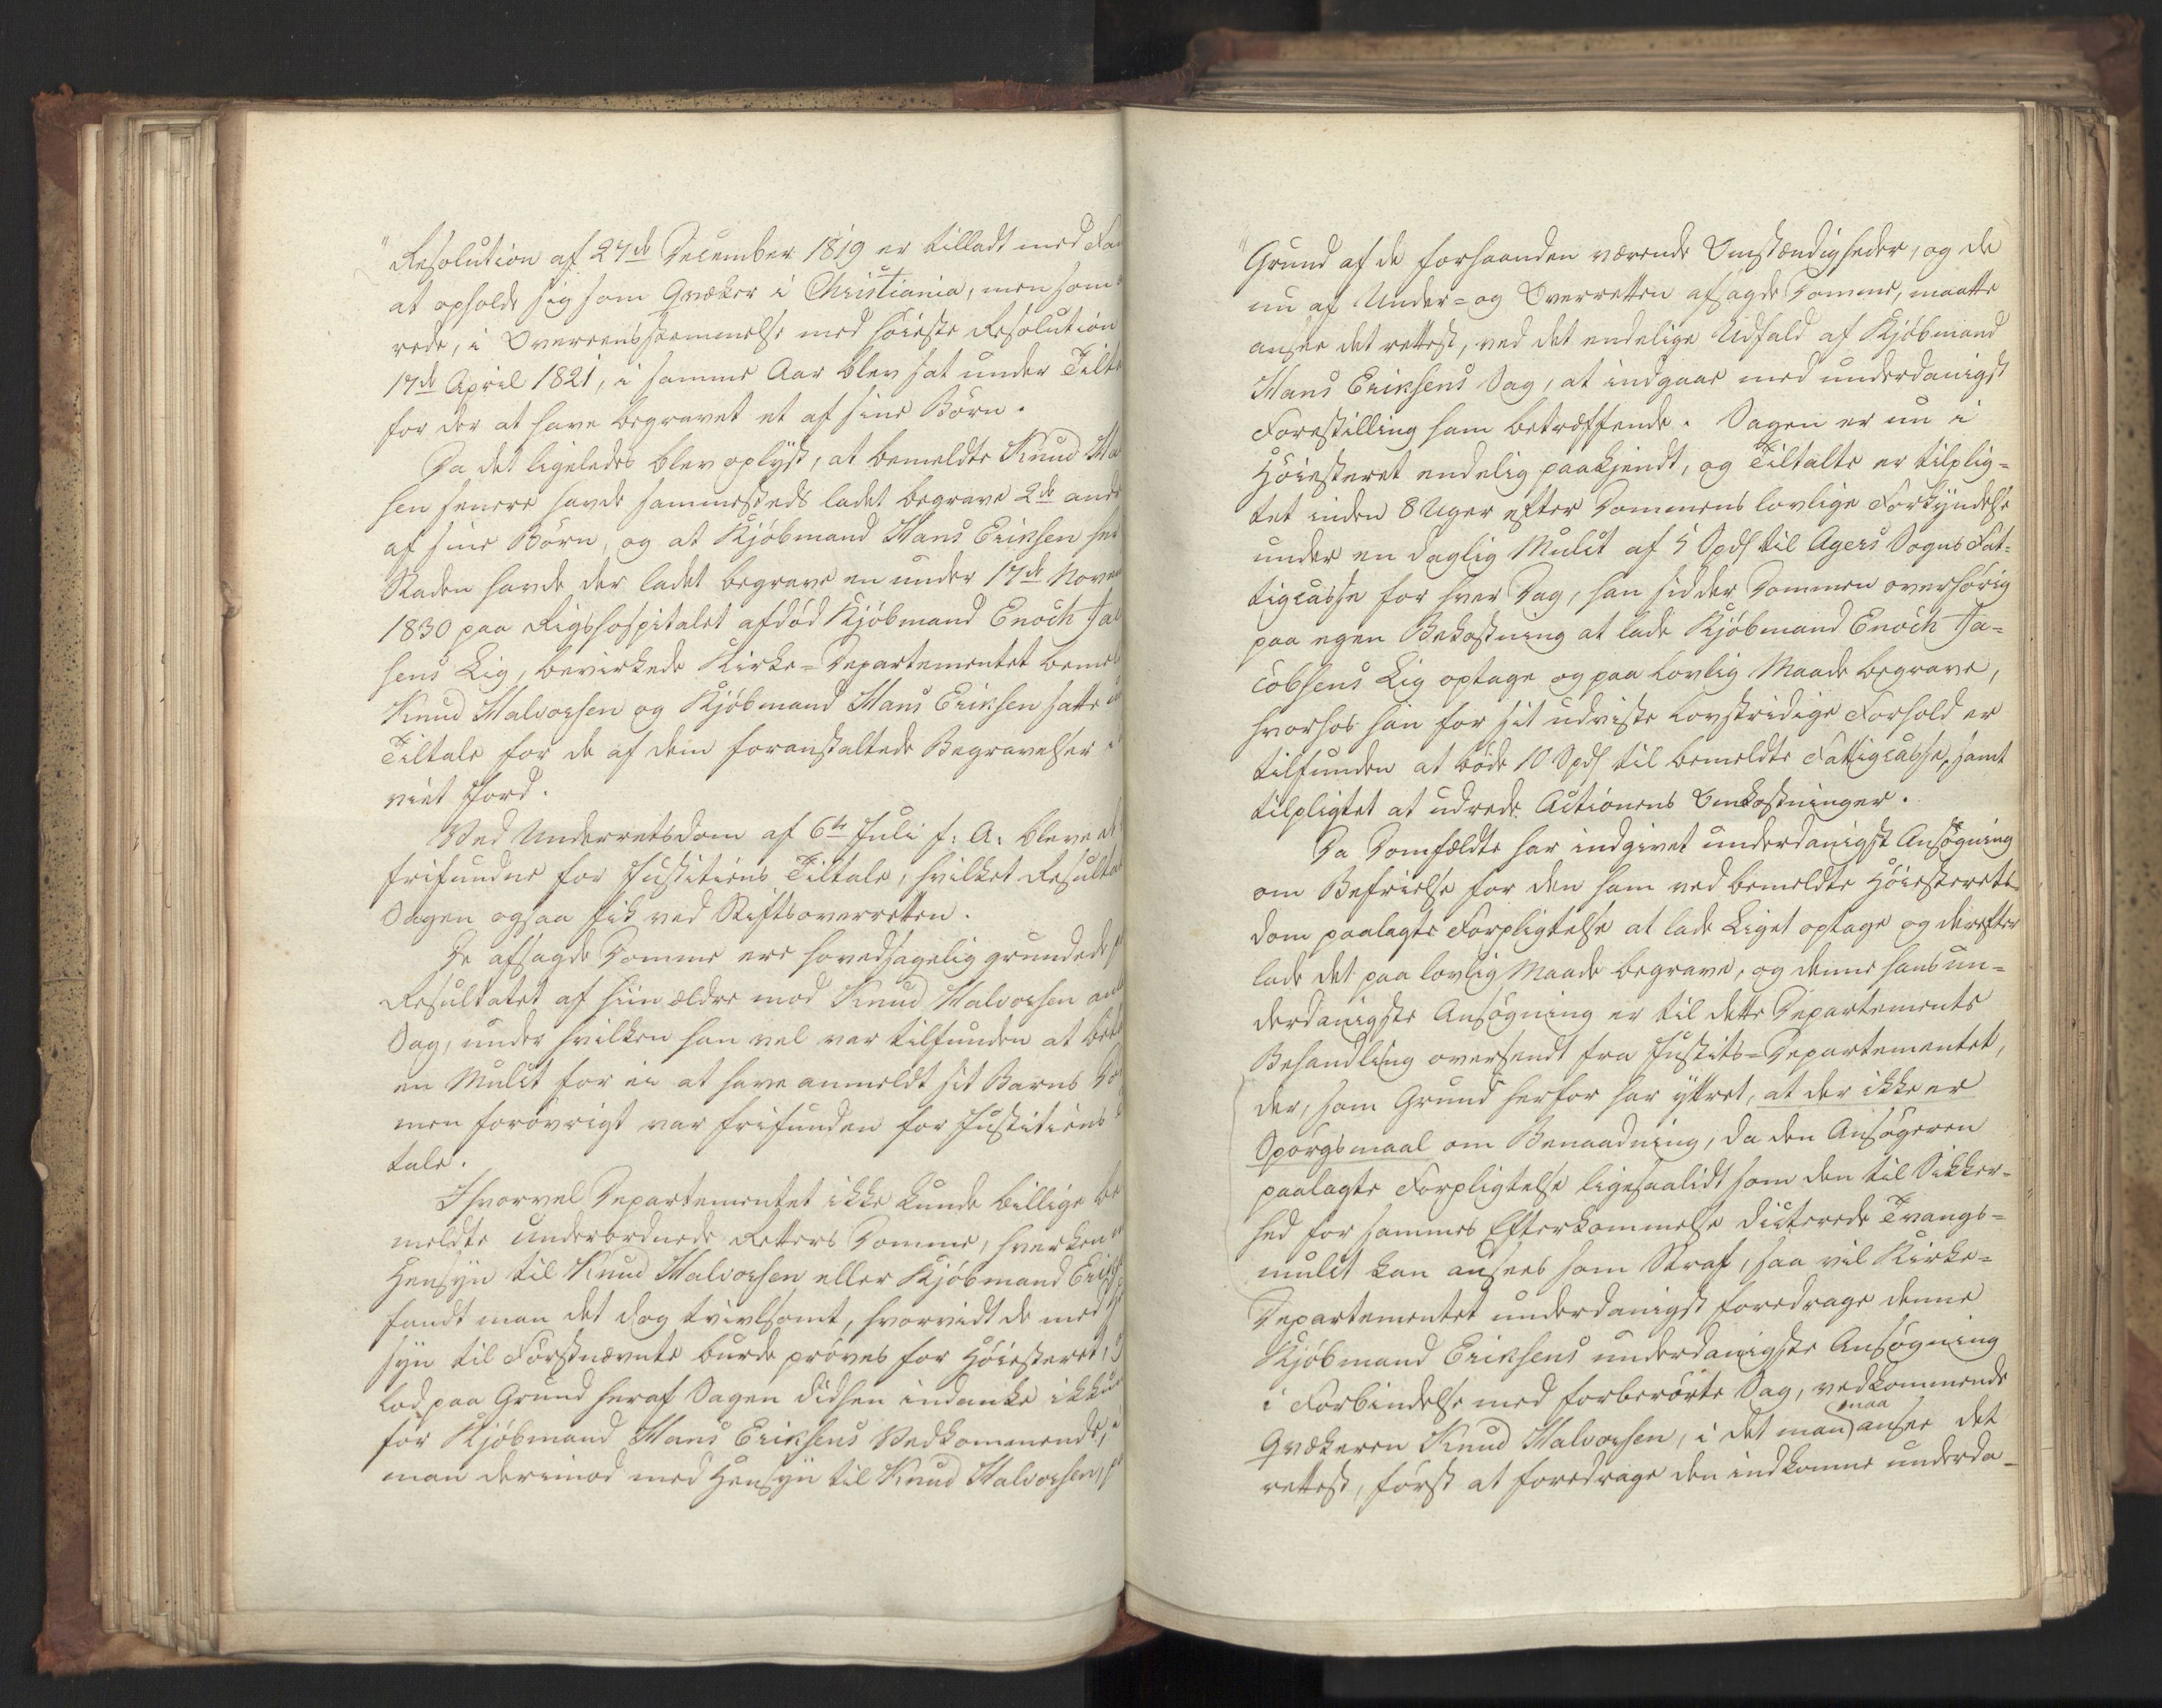 "Resolution af 27de December 1819 er tilladt med Fa
at opholde sig som Qvæker i Christiania, men som
rede, i Overeensstemmelse med høieste Resolution
17de April 1821, i samme Aar blev sat under Tilta
for der at have begravet et af sine Børn.
Da det ligeledes blev oplyst, at bemeldte Knud Ha
sen senere havde sammesteds ladet begrave 2de andr
af sine Børn, og at Kjøbmand Hans Eriksen her
Staden havde der ladet begrave en under 17de Novem
1830 paa Rigshospitalet afdød Kjøbmand Enoch Jac
sens Lig, bevirkede Kirke=Departementet bemel
Knud Halvorsen og Kjøbmand Hans Eriksen satte u
Tiltale for de af dem foranstaltede Begravelser i
viet Jord.
Ved Underretsdom af 6te Juli f: A: bleve de
frifundne for Justitiens Tiltale, hvilket Resultat
Sagen ogsaa fik ved Stiftsoverretten.
De afsagde Domme ere hovedsagelig grundede p
Resultatet af hiin ældre mod Knud Halvorsen an
Sag, under hvilken han vel var tilfunden at bet
en Mulct for ei at have anmeldt sit Barns Dø
men forøvrigt var frifunden for Justitiens
tale.
Ihvorvel Departementet ikke kunde billige be
meldte underordnede Retters Domme, hverken
Hensyn til Knud Halvorsen eller Kjøbmand Eriks
fandt man det dog tvivlsomt, hvorvidt de med H
syn til Førstnævnte burde prøves for Høiesteret,
lod paa Grund heraf Sagen didhen indanke ikkun
for Kjøbmand Hans Eriksens Vedkommende,
man derimod med Hensyn til Knud Halvorsen, p
"Grund af de forhaanden værende Omstændigheder, og de
nu af Under= og Overretten afsagde Domme, maatte
ansee det rettest, ved det endelige Udfald af Kjøbmand
Hans Eriksens Sag, at indgaae med underdanigst
Forestilling ham betræffende. Sagen er nu i
Høiesteret endelig paakjendt, og Tiltalte er tilplig=
tet inden 8 Uger efter Dommens lovlige Forkyndelse
under en daglig Mulct af 5 Spdl til Agers Sogns Fat=
tigcasse for hver Dag, han sidder Dommen overhørig
paa egen Bekostning at lade Kjøbmand Enoch Ja=
cobsens Lig optage og paa lovlig Maade begrave,
hvorhos han for sit udviste lovstridige Forhold er
tilfunden at bøde 10 Spdl til bemeldte Fattigcasse, samt
tilpligtet at udrede Actionens Omkostninger.
Da Domfældte har indgivet underdanigst Ansøgning
om Befrielse for den ham ved bemeldte Høiesterets=
dom paalagte Forpligtelse at lade Liget optage og derefter
lade det paa lovlig Maade begrave, og denne hans un=
derdanigste Ansøgning er til dette Departements
Behandling oversendt fra Justits=Departementet,
der, som Grund herfor har yttret, at der ikke er
Spørgsmaal om Benaadning, da den Ansøgeren
paalagte Forpligtelse ligesaalidt som den til Sikker=
hed for sammes Efterkommelse dicterede Tvangs=
mulct kan ansees som Straf, saa vil Kirke=
Departementet underdanigst foredrage denne
Kjøbmand Eriksens underdanigste Ansøgning
i Forbindelse med forberørte Sag, vedkommende
Qvækeren Knud Halvorsen, i det man maa ansee det
rettest, først at foredrage den indkomne underda=